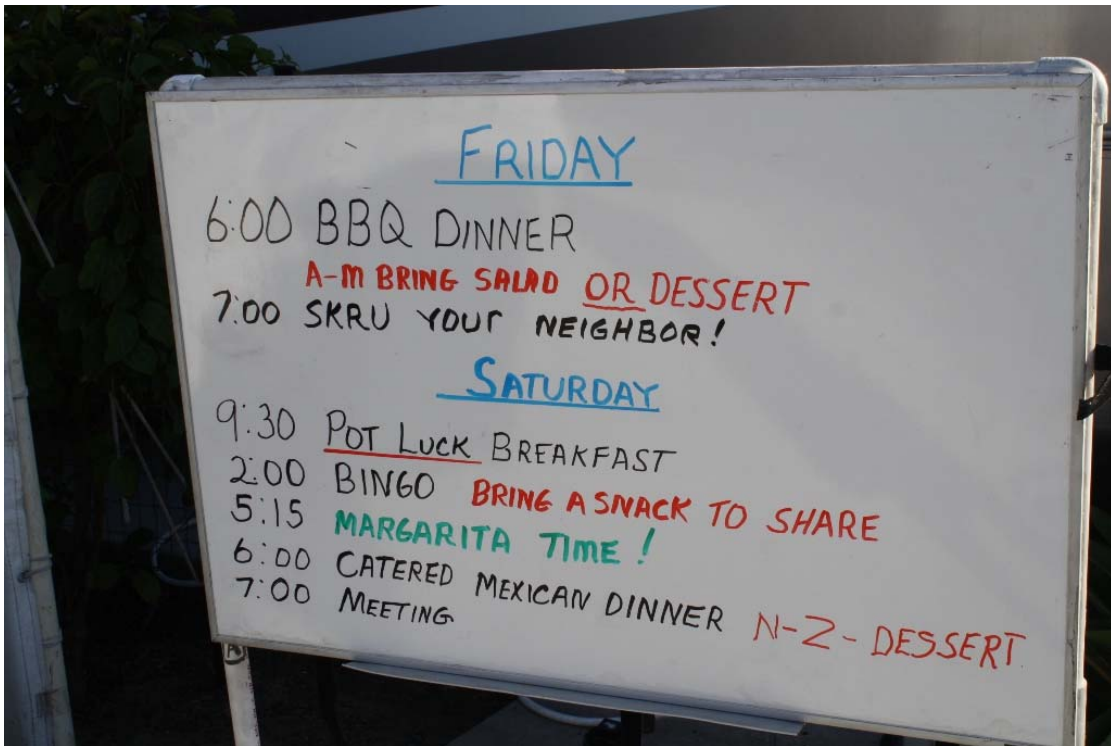 FRIDAY
6:00 BBQ DINNER
A-M BRING SALAD OR DESSERT
7:00 SKRU YOUR NEIGHBOR!
SATURDAY
9:30 POT LUCK BREAKFAST
2:00 BINGO BRING A SNACK TO SHARE
5:15 MARGARITA TIME!
6:00 CATERED MEXICAN DINNER N-Z-DESSERT
7:00 MEETING